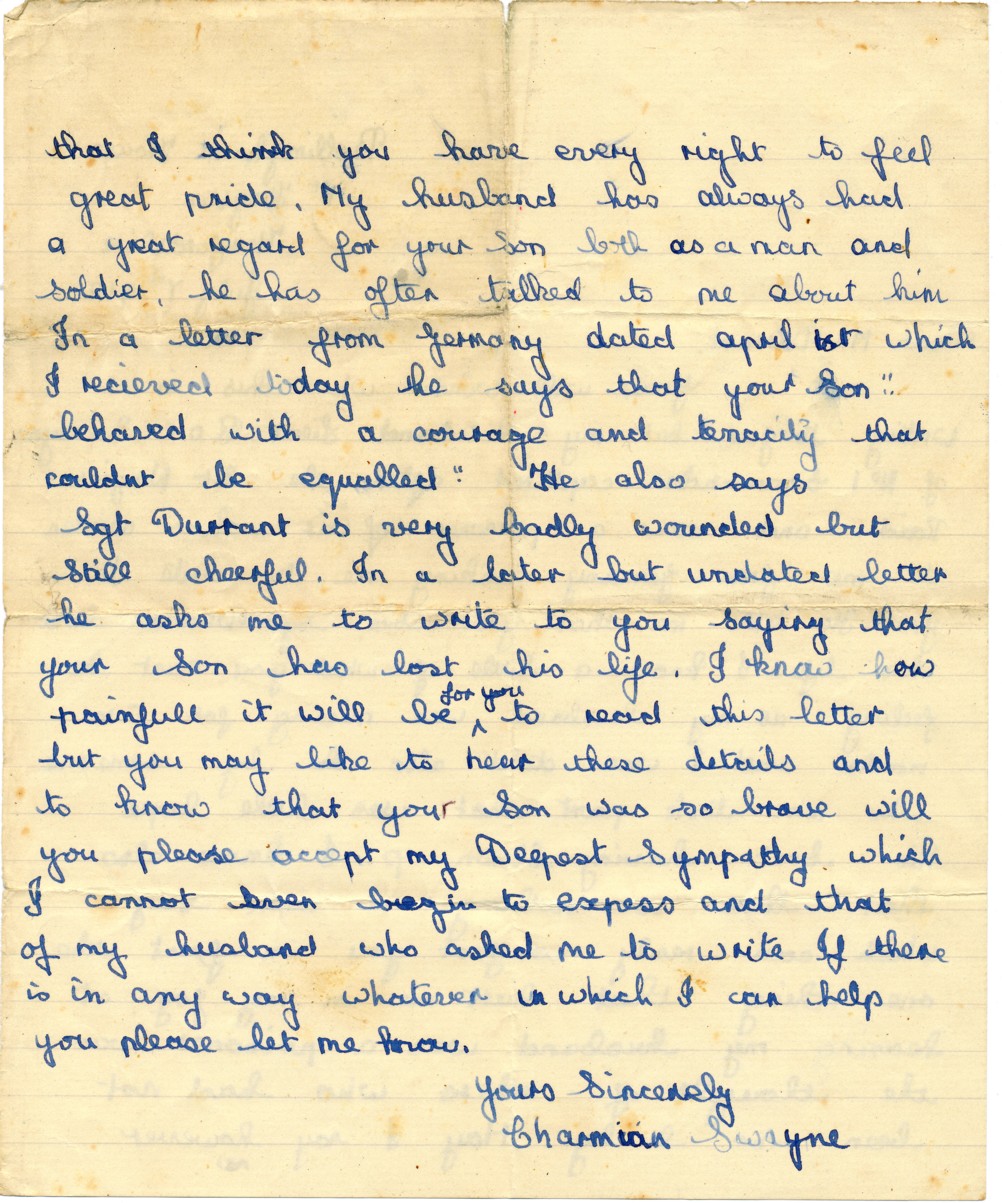 that I think you have every right to feel
great pride. My husband has always had
a great regard for your Son both as a man and
soldier, he has often talked to me about him
In a letter from Germany dated april 1st which
I recieved today he says that your Son "
behaved with a courage and tenacity that
couldnt be equalled" He also says
Sgt Durrant is very badly wounded but
still cheerful. In a later but undated letter
he asks me to write to you saying that
your Son has lost his life. I know how
for you
painfull it will be ^ to read this letter
but you may like to hear these details and
to know that your Son was so brave will
you please accept my Deepest Sympathy which
I cannot even begin to expess and that
of my husband who asked me to write If there
is in any way whatever in which I can help
you please let me know.
Yours Sincerely
Charmian Swayne